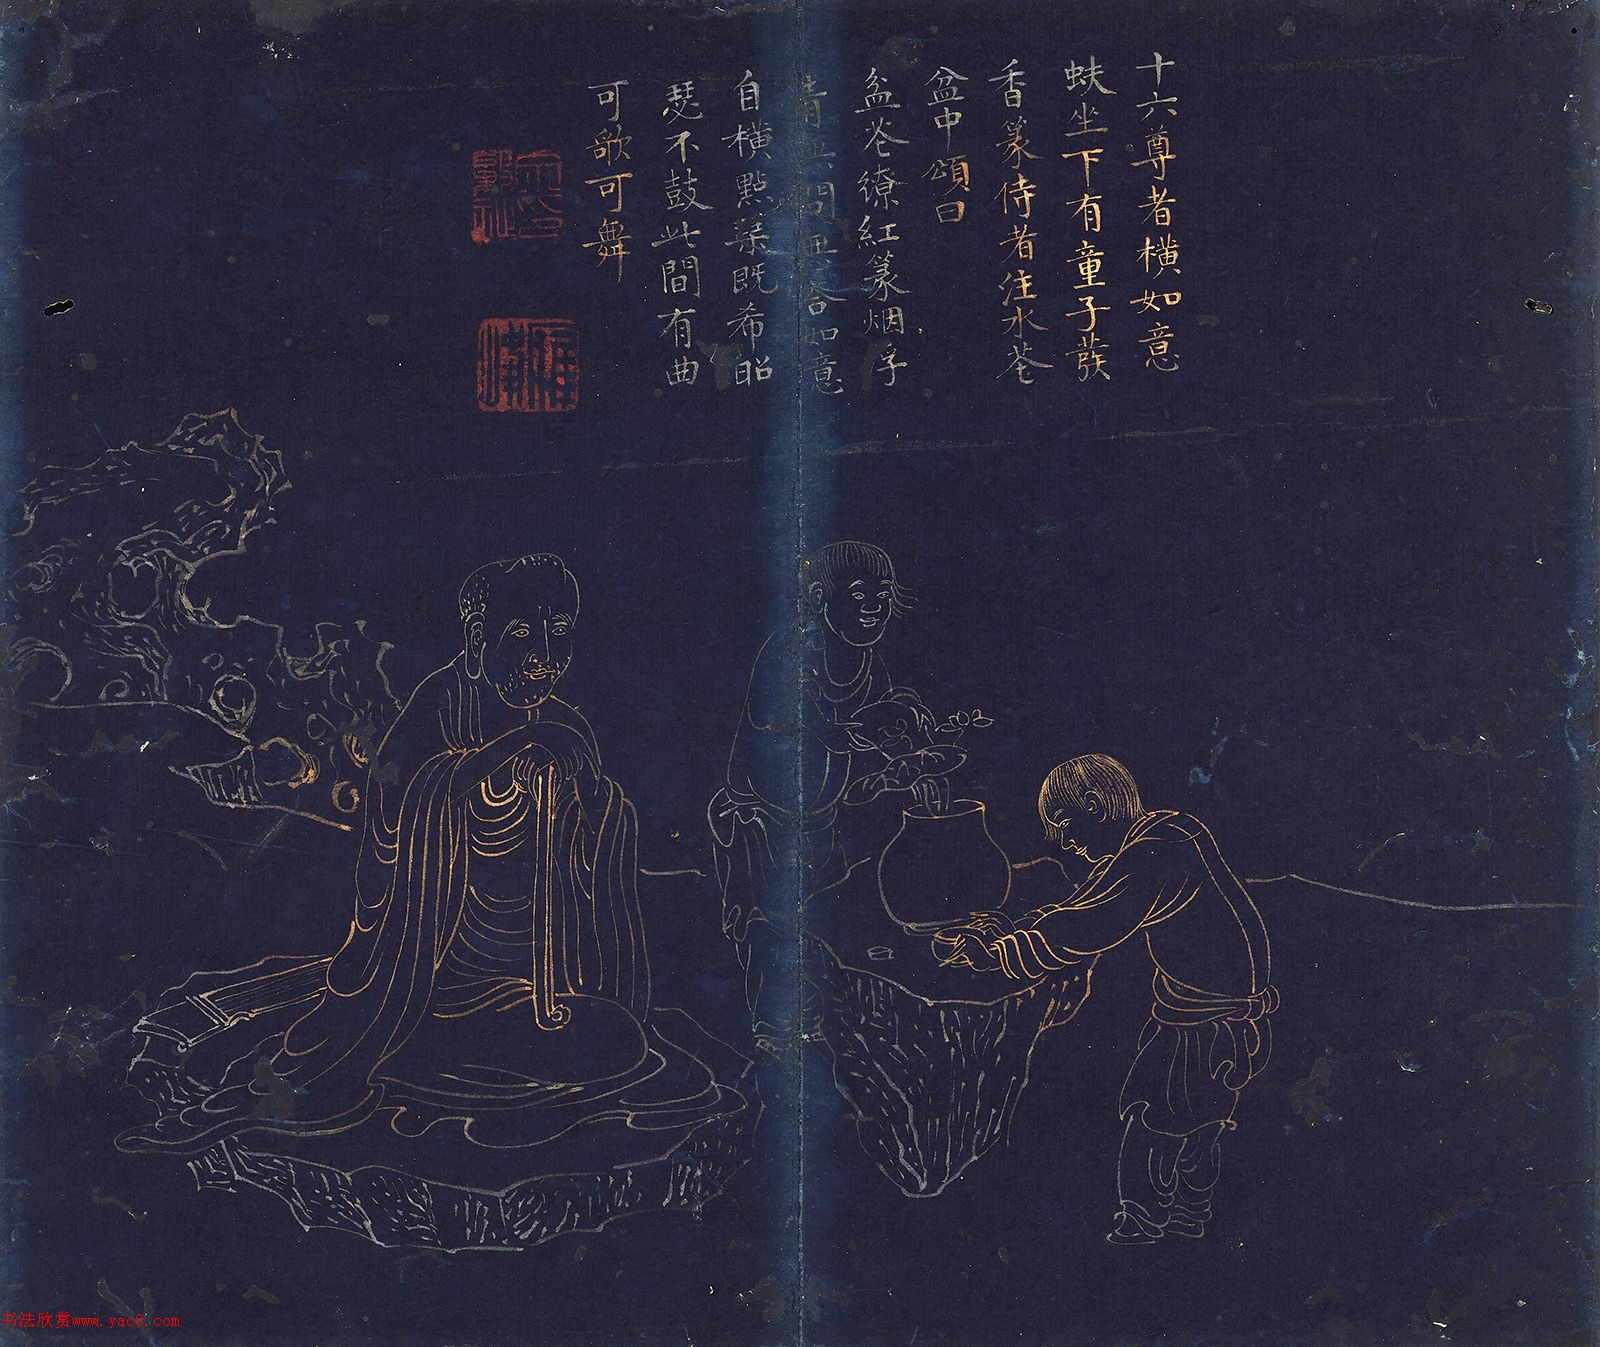 十六尊者橫如意
蚨坐下有童子發
香篆侍者注水花
盆中頌曰
盆花繚紅篆烟浮
青無問無答如意
自橫點琹既希昭
瑟不鼓此間有曲
可歌可舞
书法欣赏www.yac8.com